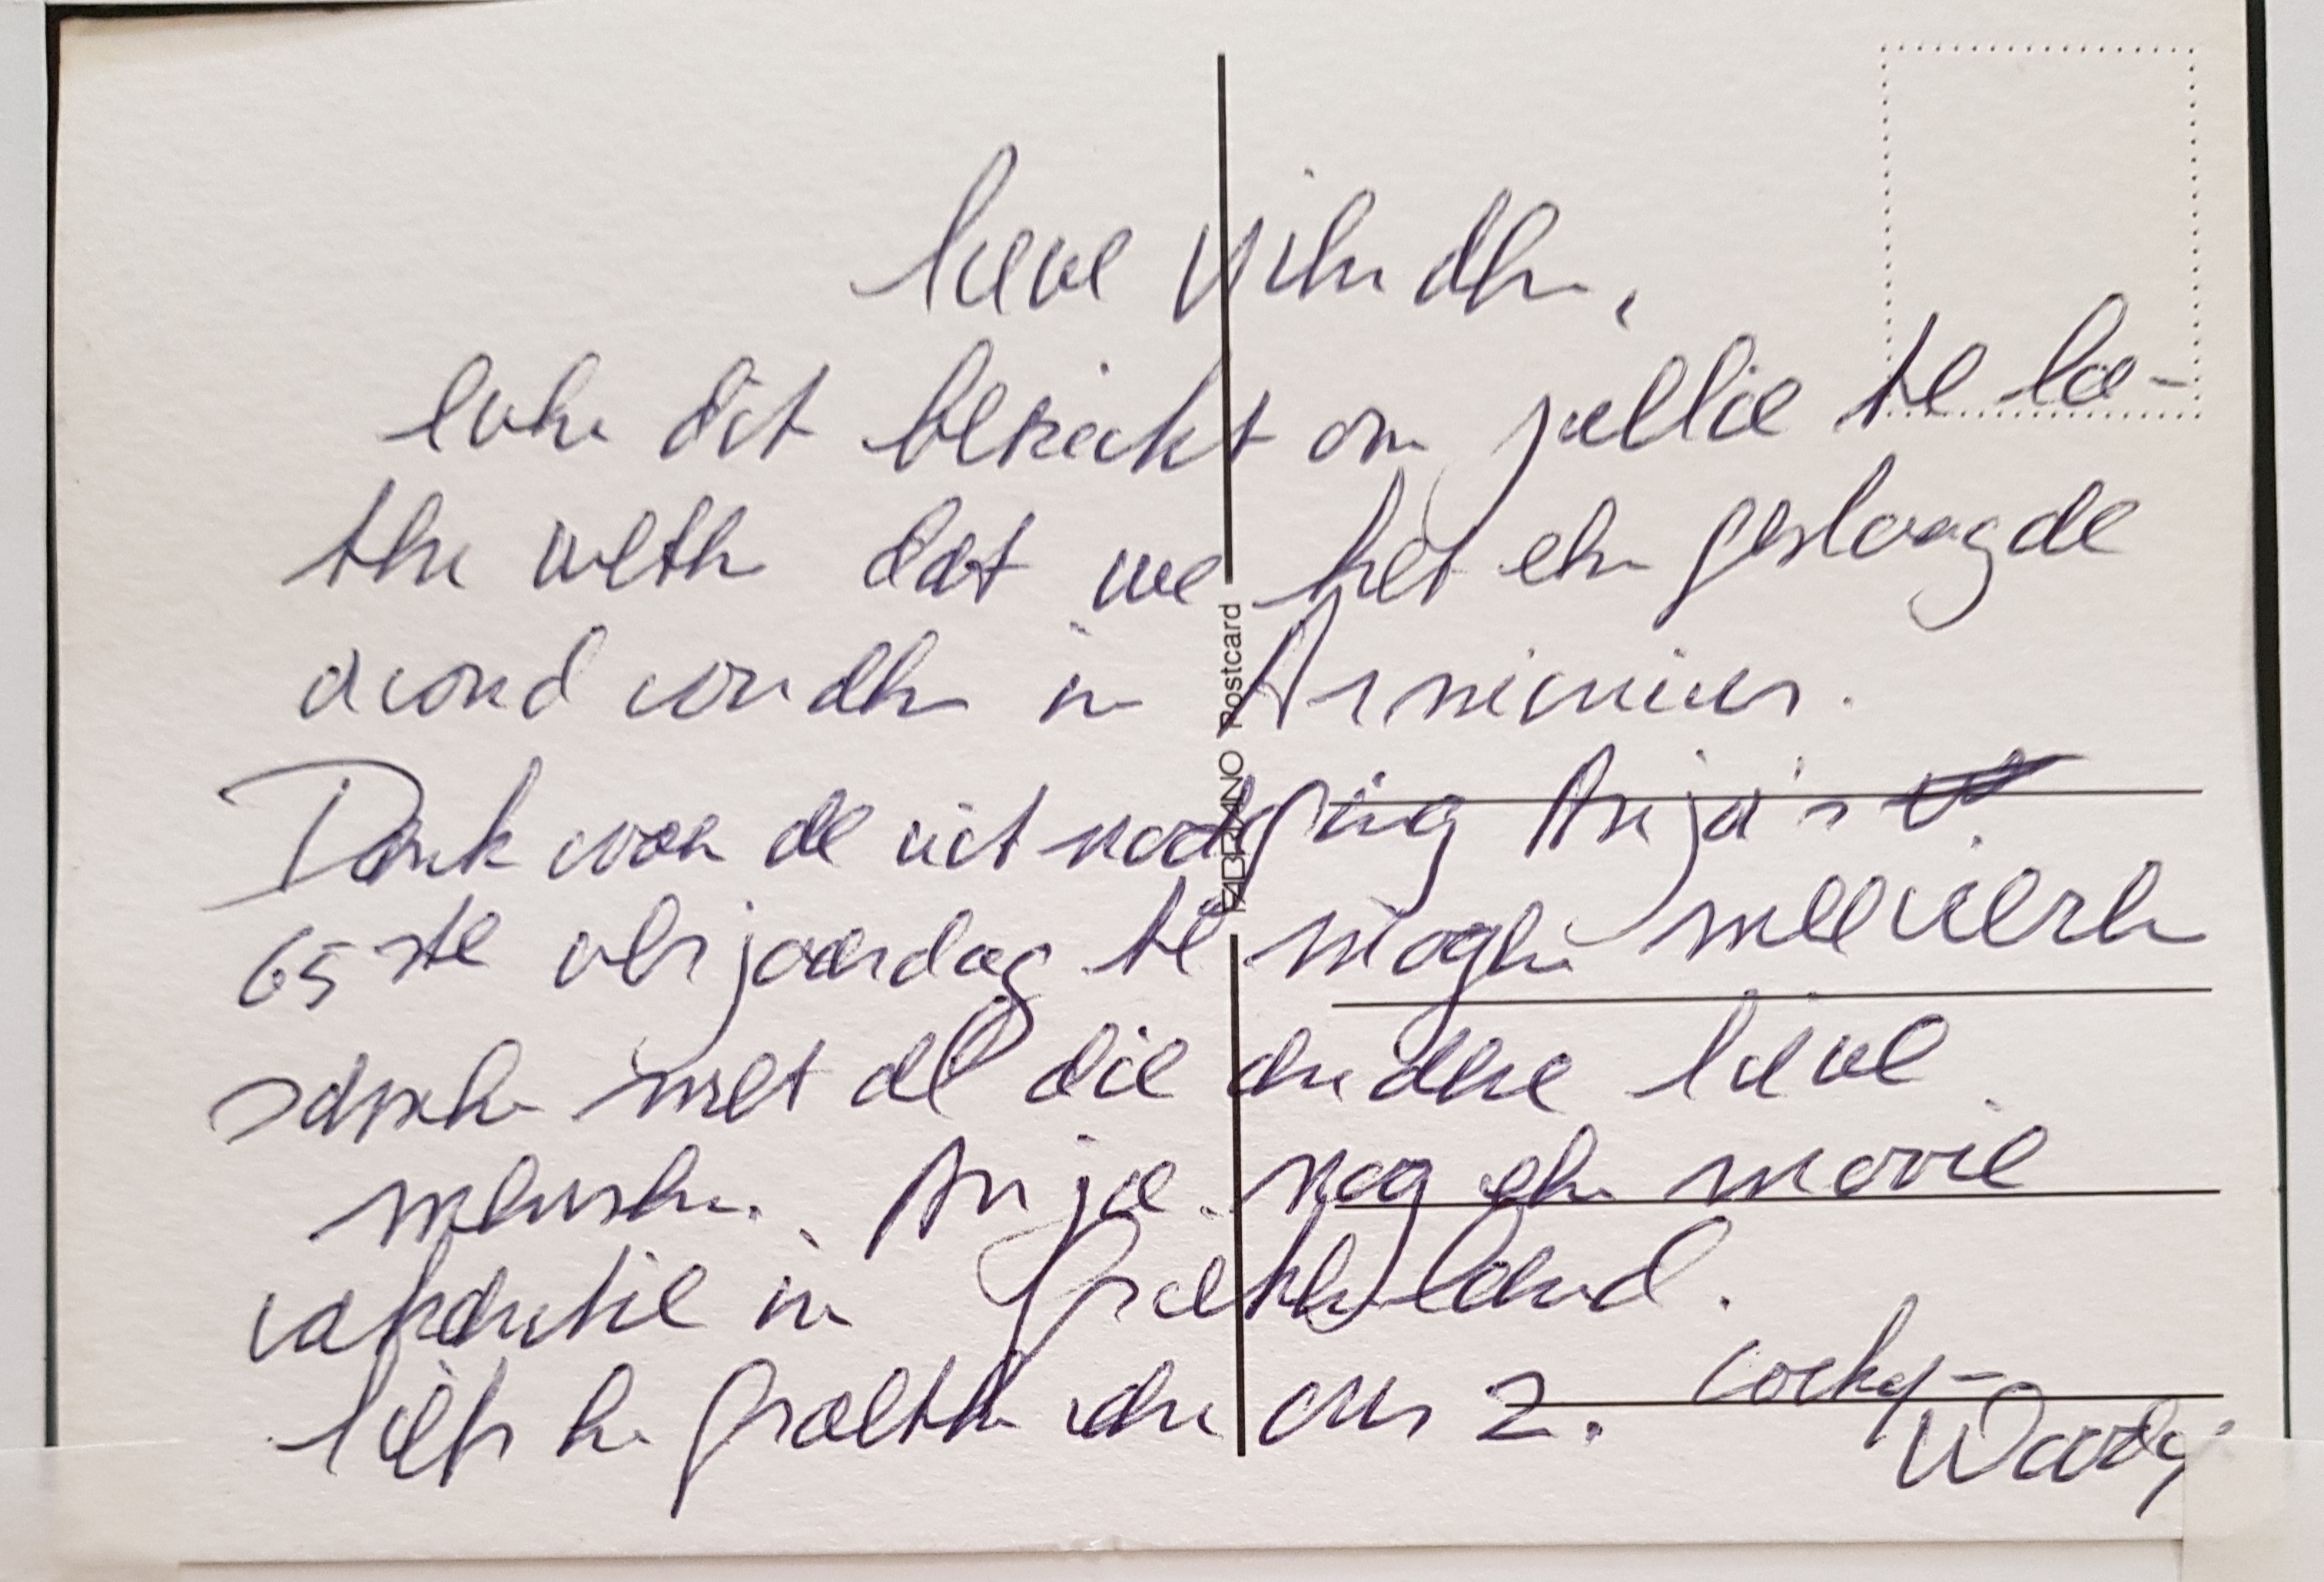 lieve vrienden,
even dit bericht om jullie te la-
ten weten dat we het een geslaagde
avond vonden in Arminius.
Dank voor de uitnodiging Anja's
65ste verjaardag te mogen meevieren
samen met al die andere lieve
mensen. Anja nog een mooie
vakantie in Griekenland.
liefs en groeten van ons 2. Cocky-
Woody
FABRIANO Postcard